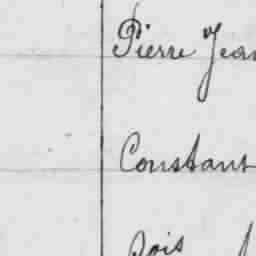 Pierre Jean
Constant